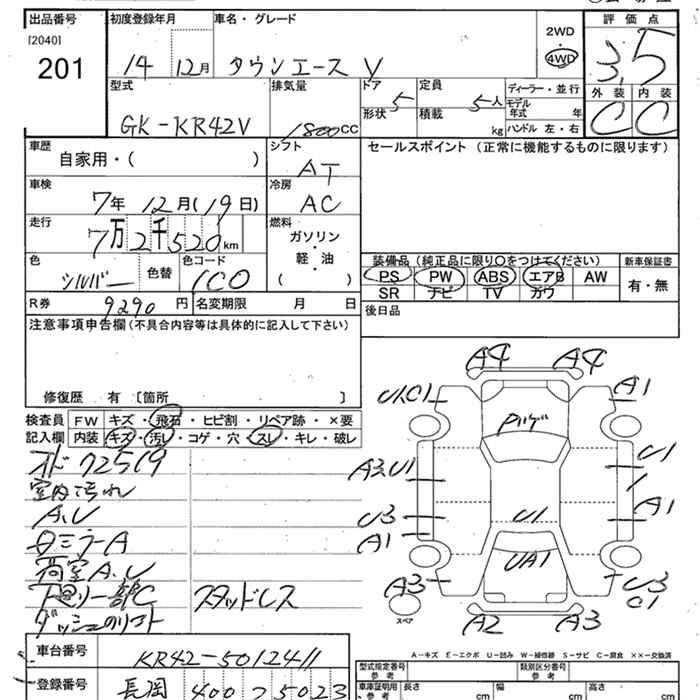 出品番号 初度登録年月 車名・グレード 評価点
[2040] 2WD
201 14 12月 タウンエース V 4WD 3.5
型式 排気量 ドア 5 定員 5人 ディーラー・並行 外装 内装
形状 積載 kg モデル年式 年
GK-KR42V 1800CC ハンドル 左・右 C C
車歴 シフト セールスポイント(正常に機能するものに限ります)
自家用・( ) AT
車検 冷房
7年 12月(19日) AC
走行 燃料
7万2千520km ガソリン
・
軽・油
( )
色 色替 色コード 装備品(純正品に限り○をつけてください) 新車保証書
シルバー 1C0 PS PW ABS エアB AW 有・無
SR ナビ TV カワ
R券 9290円 名変期限 月 日 後日品
注意事項申告欄(不具合内容等は具体的に記入して下さい)
修復歴 有 [箇所 ]
検査員 FW キズ・飛石・ヒビ割・リペア跡・×要
記入欄 内装 キズ・汚レ・コゲ・穴・スレ・キレ・破レ
オド72519
室内汚れ
A.U
荷室A.U
下廻り一部C スタッドレス
A4 A4
U1C1 A1
A3U1 U1
U3 U1 A1
A1 UA1
A3 U3
C1
スペア A2 A3
A-キズ E-エクボ U-凹み W-補修跡 S-サビ C-腐食 ××-交換済
車台番号 KR42-5012411 型式指定番号 参考 類別区分番号 参考
登録番号 長岡 400 ス 5023 車庫証明用 参考 長さ cm 幅 cm 高さ cm